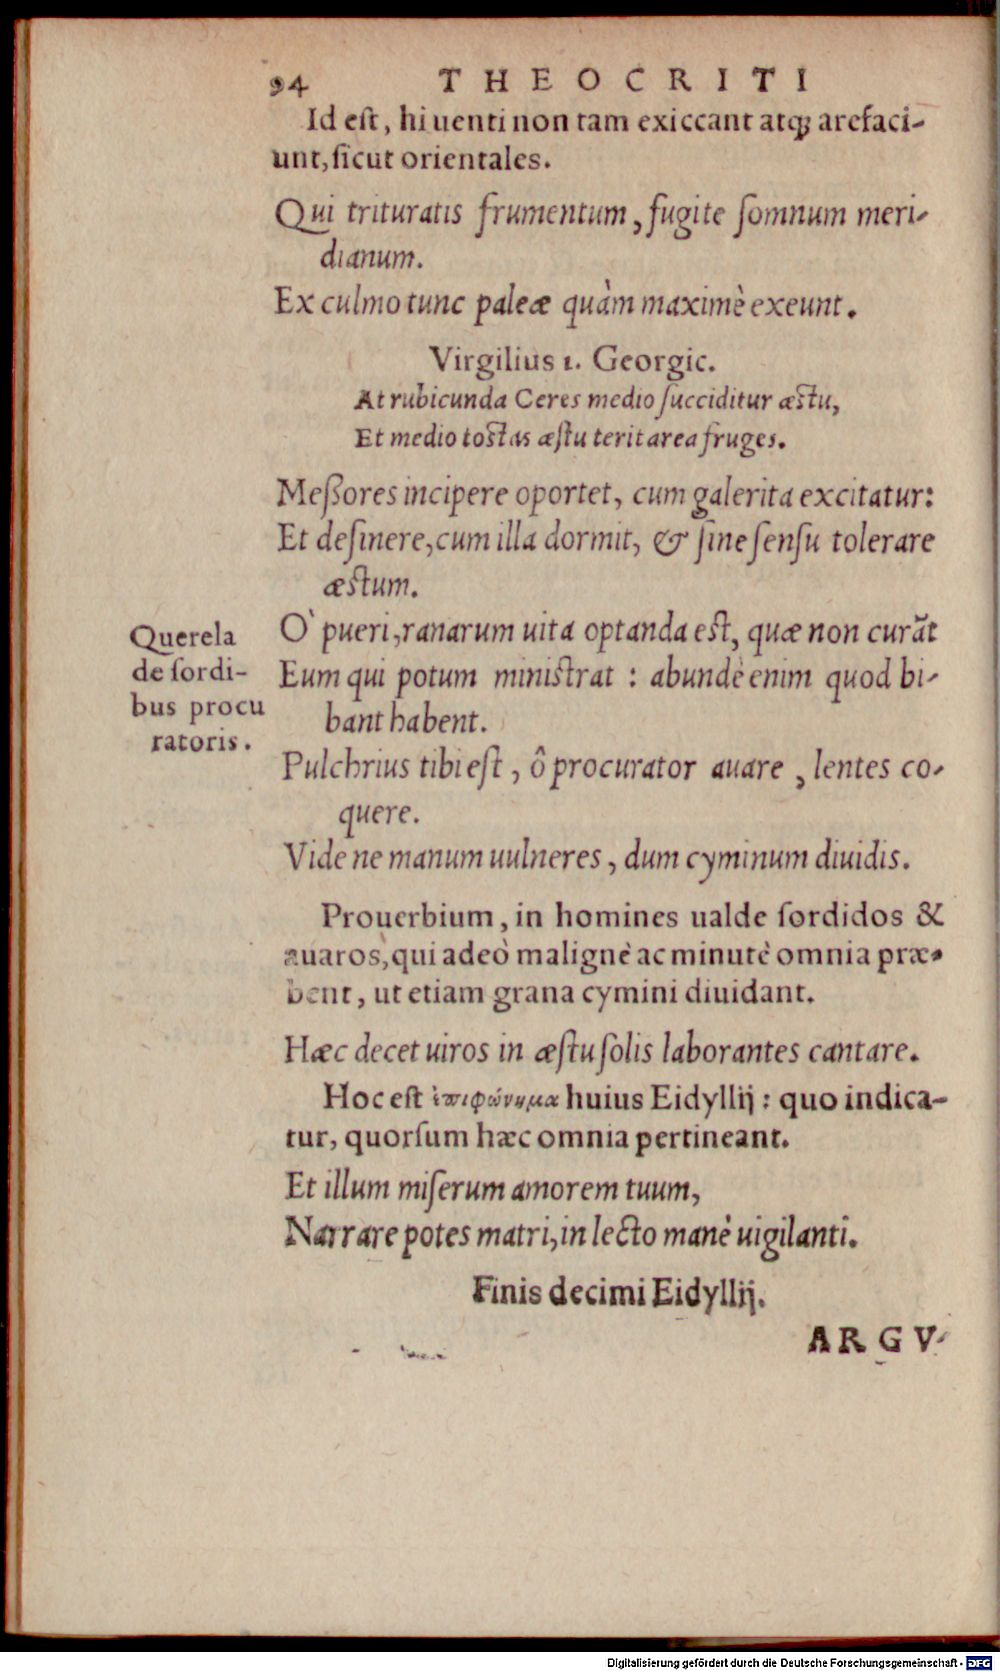 94 THEOCRITI
Id eſt, hi uenti non tam exiccant atq́; arefaci-
unt, ſicut orientales.
Qui trituratis frumentum, fugite ſomnum meri-
dianum.
Ex culmo tunc paleæ quàm maximè exeunt.
Virgilius 1. Georgic.
At rubicunda Ceres medio ſucciditur æſtu,
Et medio toſtas æſtu terit area fruges.
Meſſores incipere oportet, cum galerita excitatur:
Et deſinere, cum illa dormit, & ſine ſenſu tolerare
æſtum.
Querela
de ſordi-
bus procu
ratoris.
O` pueri, ranarum uita optanda eſt, quæ non curãt
Eum qui potum miniſtrat : abundè enim quod bi-
bant habent.
Pulchrius tibi eſt, ô procurator auare, lentes co-
quere.
Vide ne manum uulneres, dum cyminum diuidis.
Prouerbium, in homines ualde ſordidos &
auaros, qui adeò malignè ac minutè omnia præ-
bent, ut etiam grana cymini diuidant.
Hæc decet uiros in æſtu ſolis laborantes cantare.
Hoc eſt ἐπιφώνημα huius Eidyllij : quo indica-
tur, quorſum hæc omnia pertineant.
Et illum miſerum amorem tuum,
Narrare potes matri, in lecto manè uigilanti.
Finis decimi Eidyllij.
ARGV-
Digitalisierung gefördert durch die Deutsche Forschungsgemeinschaft - DFG